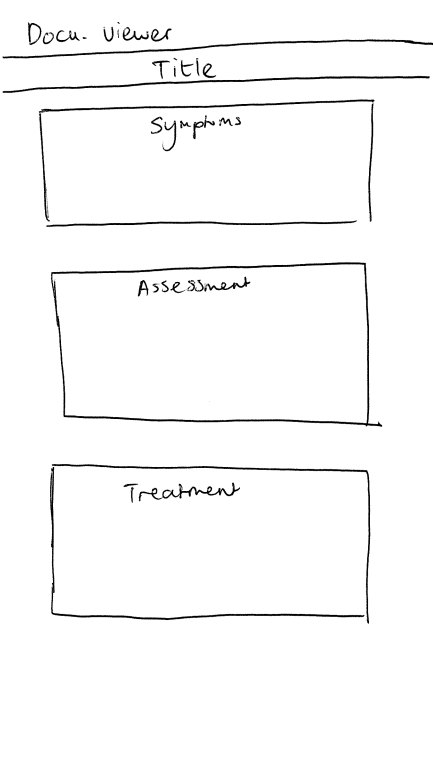 Docu. Viewer
Title
Symptoms
Assessment
Treatment